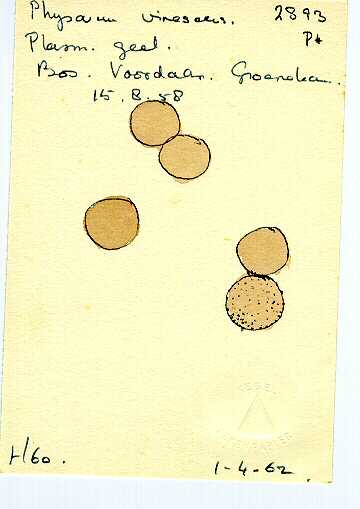 Physarum virescens. 2893
Plasm. geel. P*
Bos. Voordaan. Groenekan.
15.8.58
H/60.
1-4-62